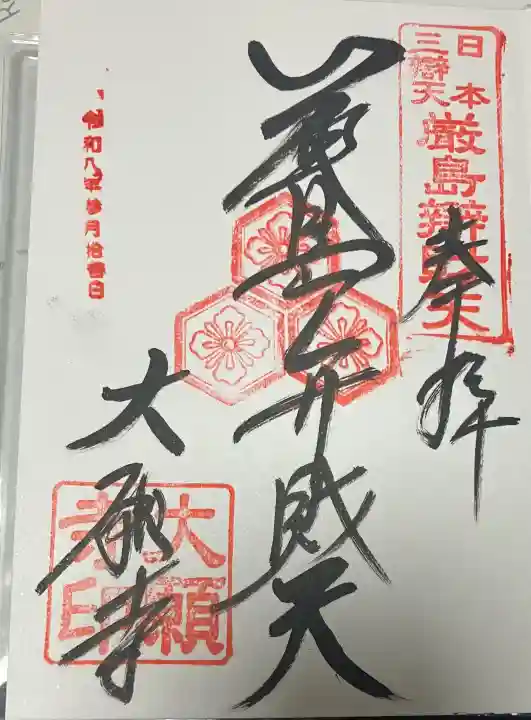 日本
三辯天
厳島辯財天
奉拝
厳島弁財天
令和八年参月拾壱日
大願寺
大願
寺印